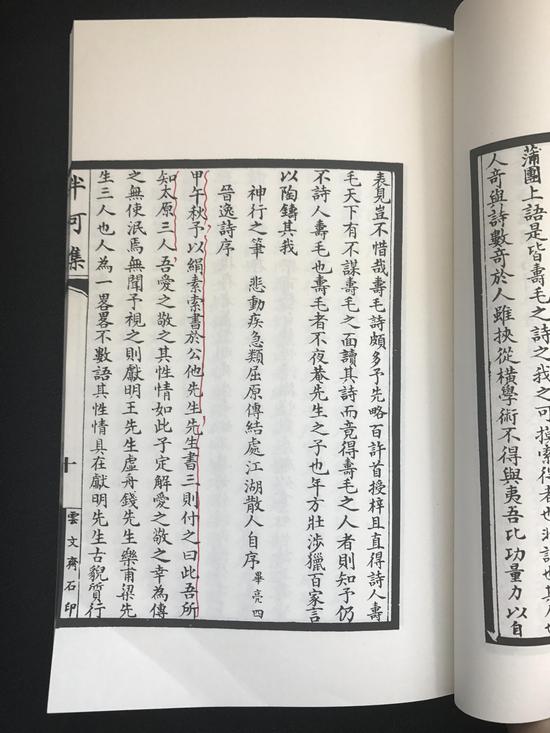 蒲團上語是皆壽毛之詩之我之可摸索得者也
人奇與詩數奇於人雖挾從橫學術不得與夷吾比功量力以自
表見豈不惜哉壽毛詩頗多予先略百許首授梓且直得詩人壽
毛天下有不謀壽毛之面讀其詩而竟得壽毛之人者則知予仍
不詩人壽毛也壽毛者不夜菴先生之子也年方壯涉獵百家言
以陶鑄其我
神行之筆 悲動疾急類屈原傳結處江湖散人自序 畢亮四
晉逸詩序
甲午秋予以絹素索書於公他先生先生書三則付之曰此吾所
知太原三人吾愛之敬之其性情如此子定解愛之敬之幸為傳
之無使泯焉無聞予視之則獻明王先生虛舟錢先生樂甫梁先
生三人也人為一畧畧不數語其性情具在獻明先生古貌質行
半可集
十
雲文齋石印